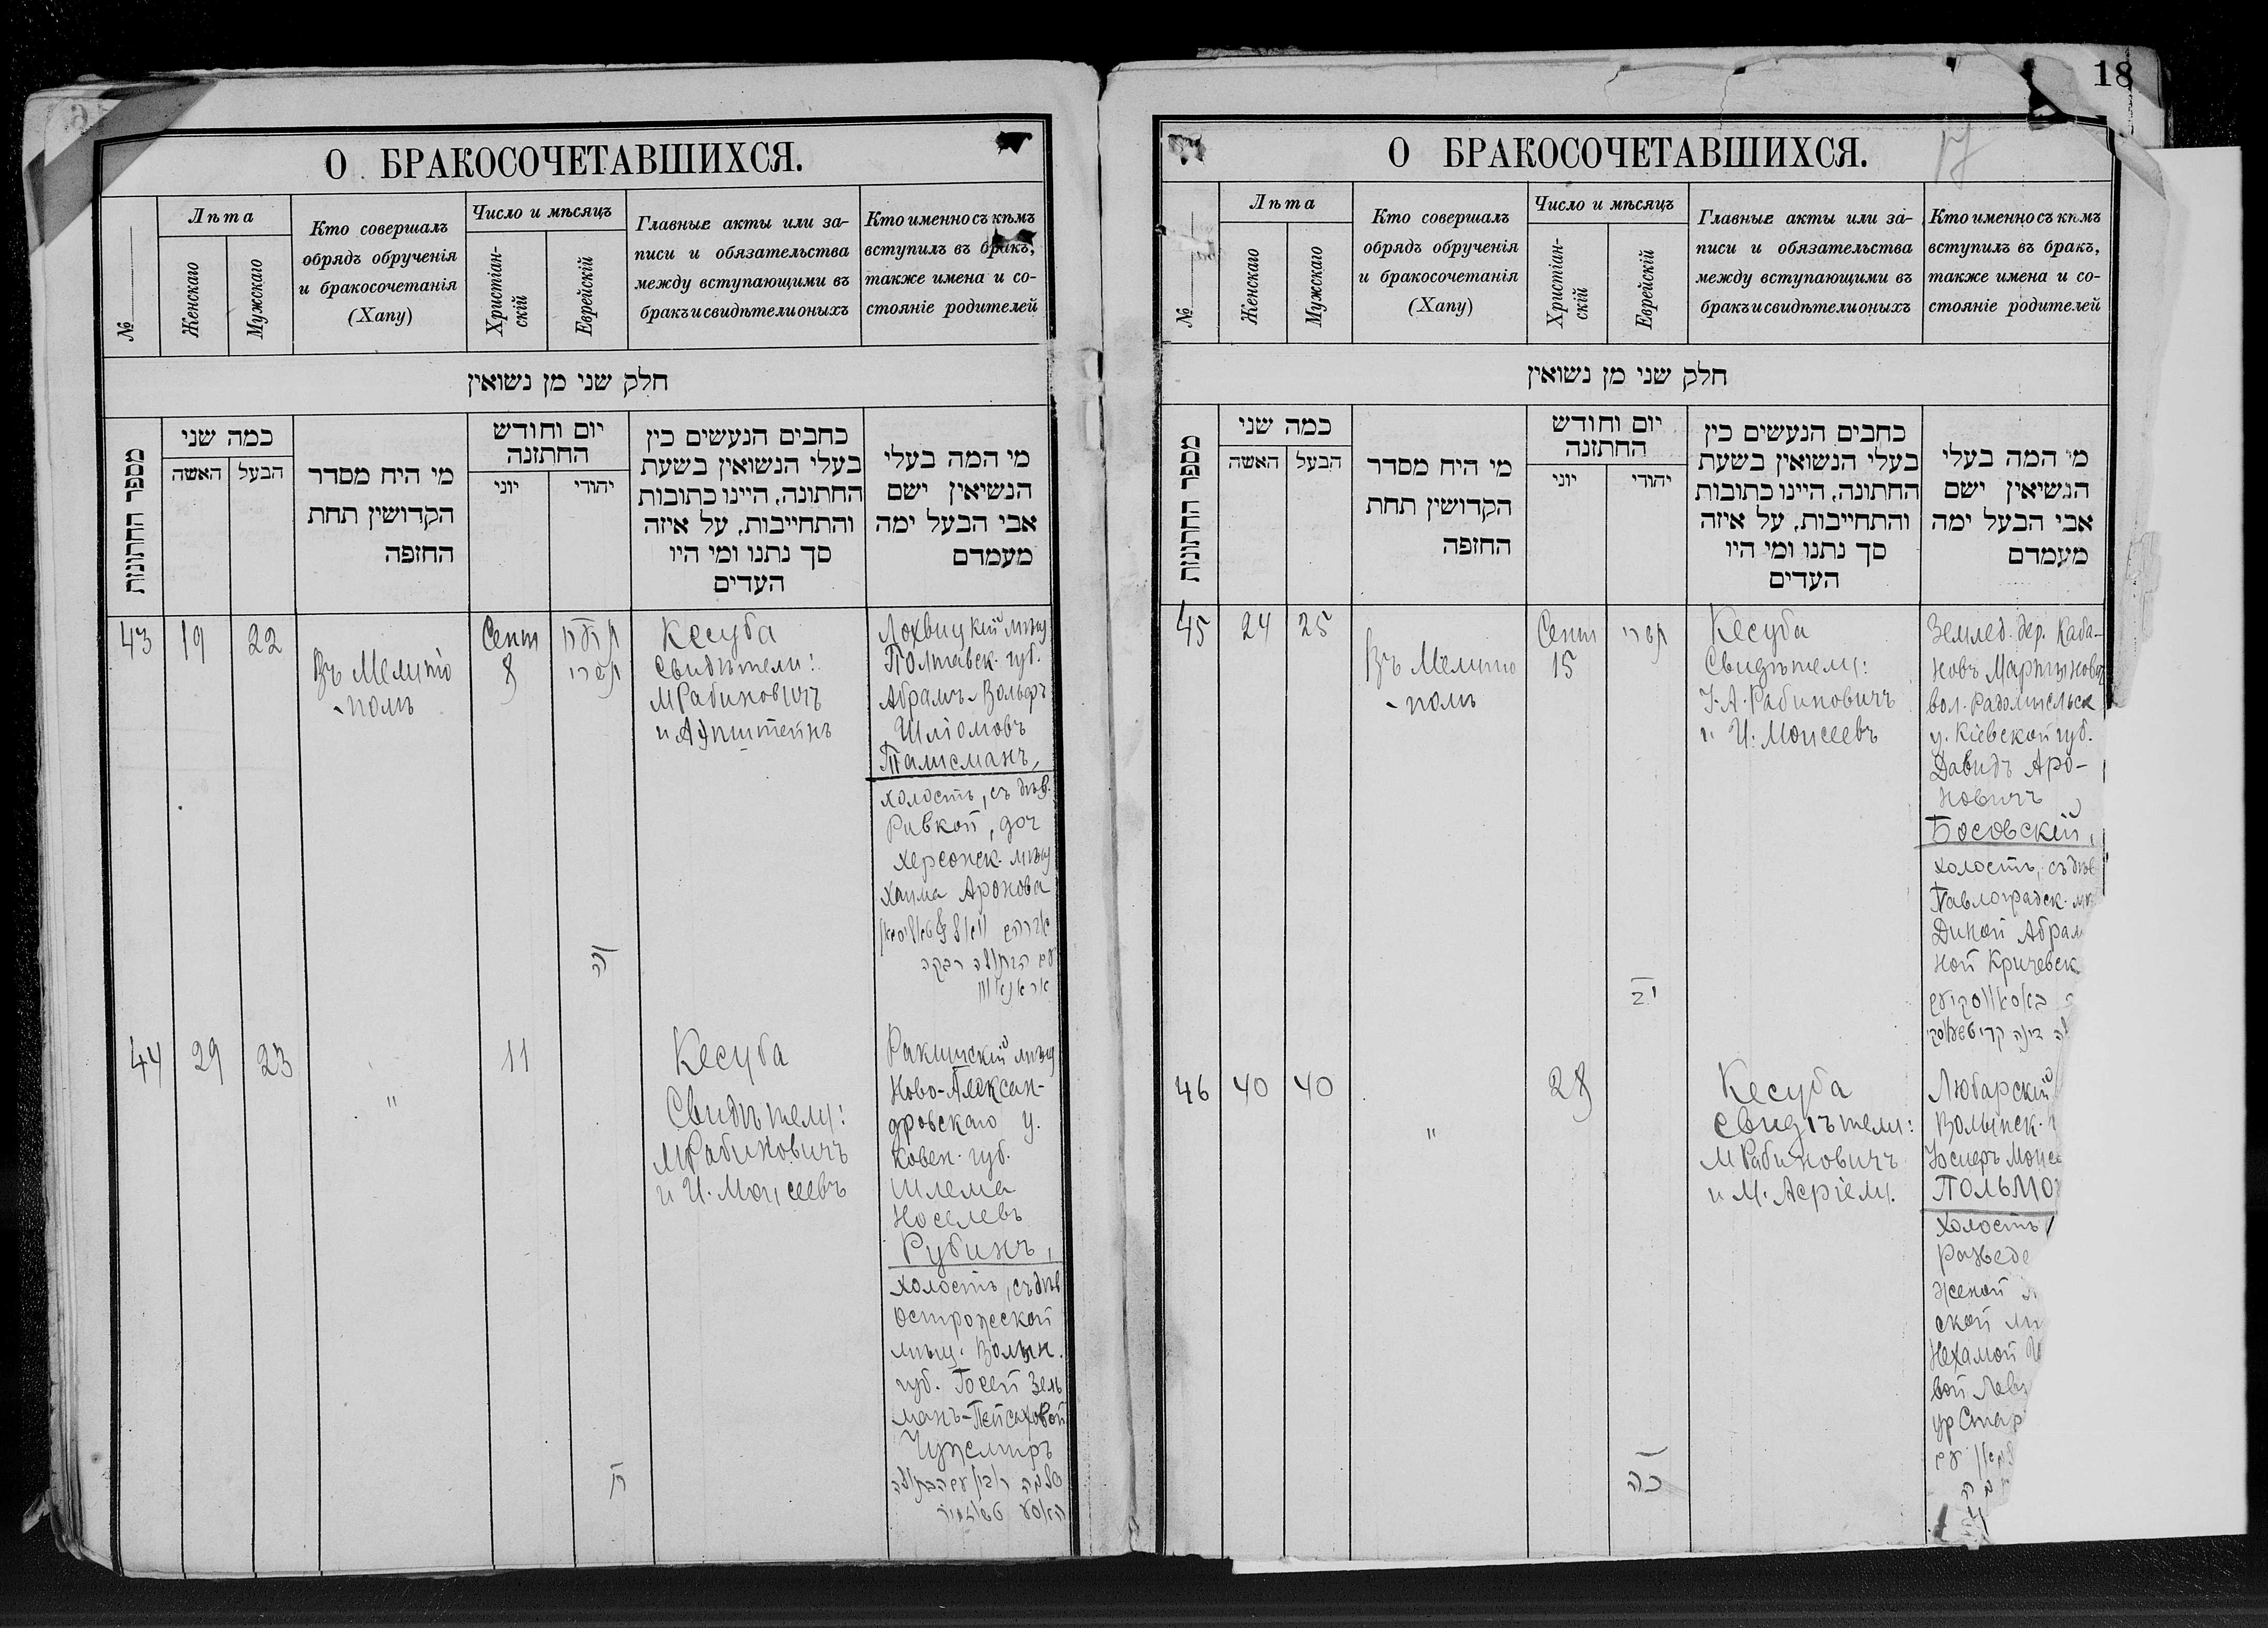 О БРАКОСОЧЕТАВШИХСЯ.
№
Лѣта
Женскаго
Мужскаго
Кто совершалъ
обрядъ обрученія
и бракосочетанія
(Хапу)
Число и мѣсяцъ
Христіан-
скій
Еврейскій
Главные акты или за-
писи и обязательства
между вступающими въ
бракъ и свидѣтели оныхъ
Кто именно съ кѣмъ
вступилъ въ бракъ,
также имена и со-
стояніе родителей
חלק שני מן נשואין
מספר החתונות
כמה שני
האשה
הבעל
מי היח מסדר
הקדושין תחת
החופה
יום וחודש
החתונה
יוני
יהודי
כחבים הנעשים כין
בעלי הנשואין בשעת
החתונה, היינו כתובות
והתחייבות, על איזה
סך נתנו ומי היו
העדים
מי המה בעלי
הנשיאין ישם
אבי הבעל ימה
מעמדם
43
19
22
Въ Мелито
-полѣ
Сент
8
תשרי
Кесуба
Свидѣтели:
М Рабиновичъ
и А Эпштейнъ
Лохвицкій мѣщ
Полтавск. губ.
Абрамъ-Вольфъ
Шліомовъ
Талисманъ,
холостъ, съ дѣв.
Ривкой, доч
херсонск. мѣщ
Хаима Аронова
עם הבתולה רבקה
44
29
23
"
11
Кесуба
Свидѣтели:
М Рабиновичъ
и И. Моисеевъ
Ракишскій мѣщ
Ново-Алексан-
дровскаго у.
Ковен. губ.
Шлема
Носелевъ
Рубинъ,
холостъ, съ дѣв
Острожеской
мѣщ. Волын.
губ. Госей Зель
манъ-Пейсаховой
Чужемиръ
שלמה רובין עם הבתולה
ח
18
17
О БРАКОСОЧЕТАВШИХСЯ.
№
Лѣта
Женскаго
Мужскаго
Кто совершалъ
обрядъ обрученія
и бракосочетанія
(Хапу)
Число и мѣсяцъ
Христіан-
скій
Еврейскій
Главные акты или за-
писи и обязательства
между вступающими въ
бракъ и свидѣтели оныхъ
Кто именно съ кѣмъ
вступилъ въ бракъ,
также имена и со-
стояніе родителей
חלק שני מן נשואין
מספר החתונות
כמה שני
האשה
הבעל
מי היח מסדר
הקדושין תחת
החופה
יום וחודש
החתונה
יוני
יהודי
כחבים הנעשים כין
בעלי הנשואין בשעת
החתונה, היינו כתובות
והתחייבות, על איזה
סך נתנו ומי היו
העדים
מי המה בעלי
הנשיאין ישם
אבי הבעל ימה
מעמדם
45
24
25
Въ Мелито
-полѣ
Сент
15
תשרי
יב
Кесуба
Свидѣтели:
І. А. Рабиновичъ
и И. Моисеевъ
Землед. дер. Каба-
новъ Мартинов
вол. Радомысльск
у. Кіевской губ.
Давидъ Аро-
новичъ
Босовскій,
холостъ, съ дѣв
Павлоградск. мѣ
Диной Абрам
ной Кричевск
46
40
40
"
28
כה
Кесуба
Свидѣтели:
М Рабиновичъ
и М. Асріели.
Любарскій
Волынск.
Юсперъ Моисе
Польмо
холостъ
Разведе
женой
ской мѣ
Нехамой
вой Лев
ур Стар